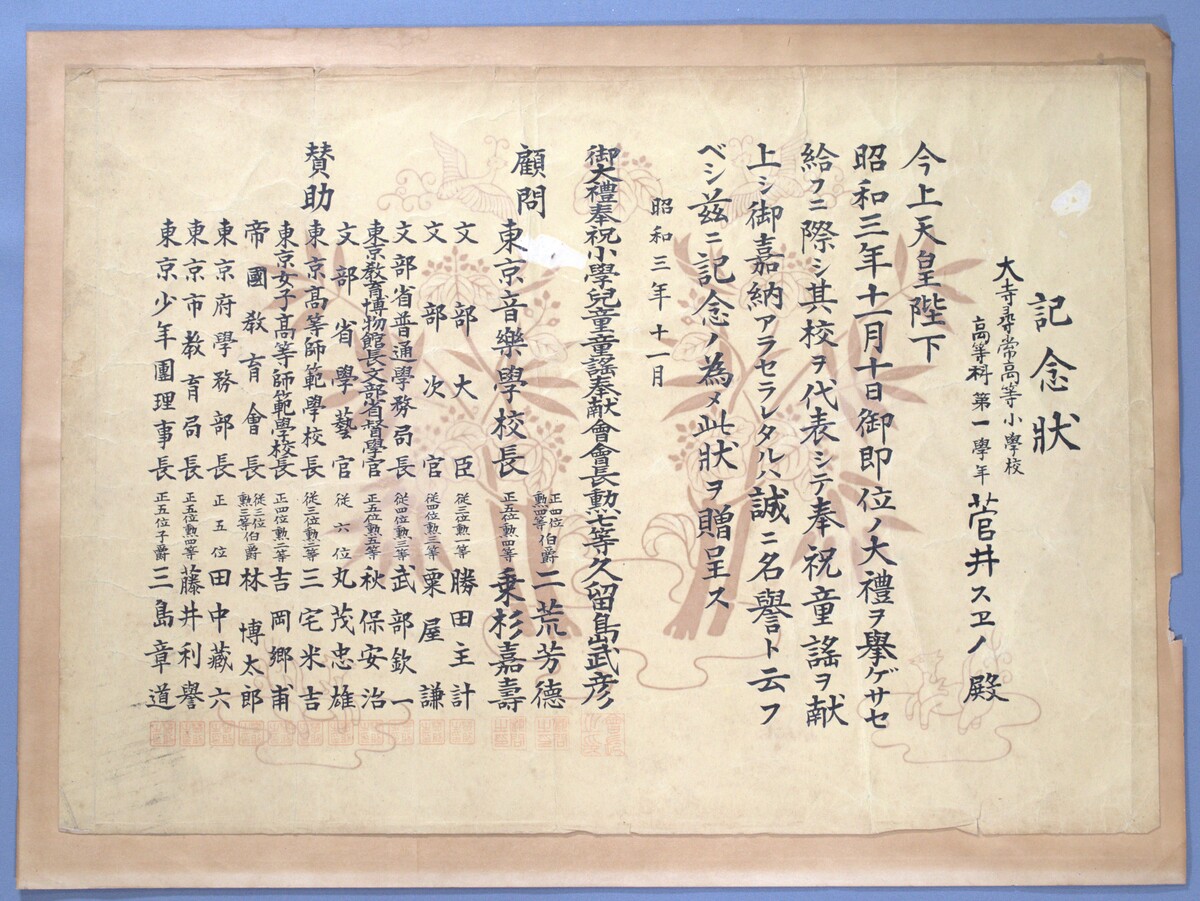 記念状
大寺尋常高等小學校
高等科第一學年
菅井スヱノ殿
今上天皇陛下
昭和三年十一月十日御即位ノ大禮ヲ擧ゲサセ
給フニ際シ其校ヲ代表シテ奉祝童謠ヲ献
上シ御嘉納アラセラレタルハ誠ニ名譽ト云フ
ベシ茲ニ記念ノ為メ此状ヲ贈呈ス
昭和三年十一月
御大禮奉祝小學兒童童謠奉献會會長勳七等久留島武彦
顧問
正四位勳四等伯爵二荒芳德
東京音樂學校長正五位勳四等乗杉嘉壽
賛助
文部大臣従三位勳一等勝田主計
文部次官従四位勳三等粟屋謙
文部省普通學務局長従四位勳三等武部欽一
東京教育博物館長文部省督學官正五位勳五等秋保安治
文部省學藝官従六位丸茂忠雄
東京高等師範學校長従三位勳二等三宅米吉
東京女子高等師範學校長正四位勳二等吉岡郷甫
帝國教育會長従三位勳三等伯爵林博太郎
東京府學務部長正五位田中藏六
東京市教育局長正五位勳四等藤井利譽
東京少年團理事長正五位子爵三島章道